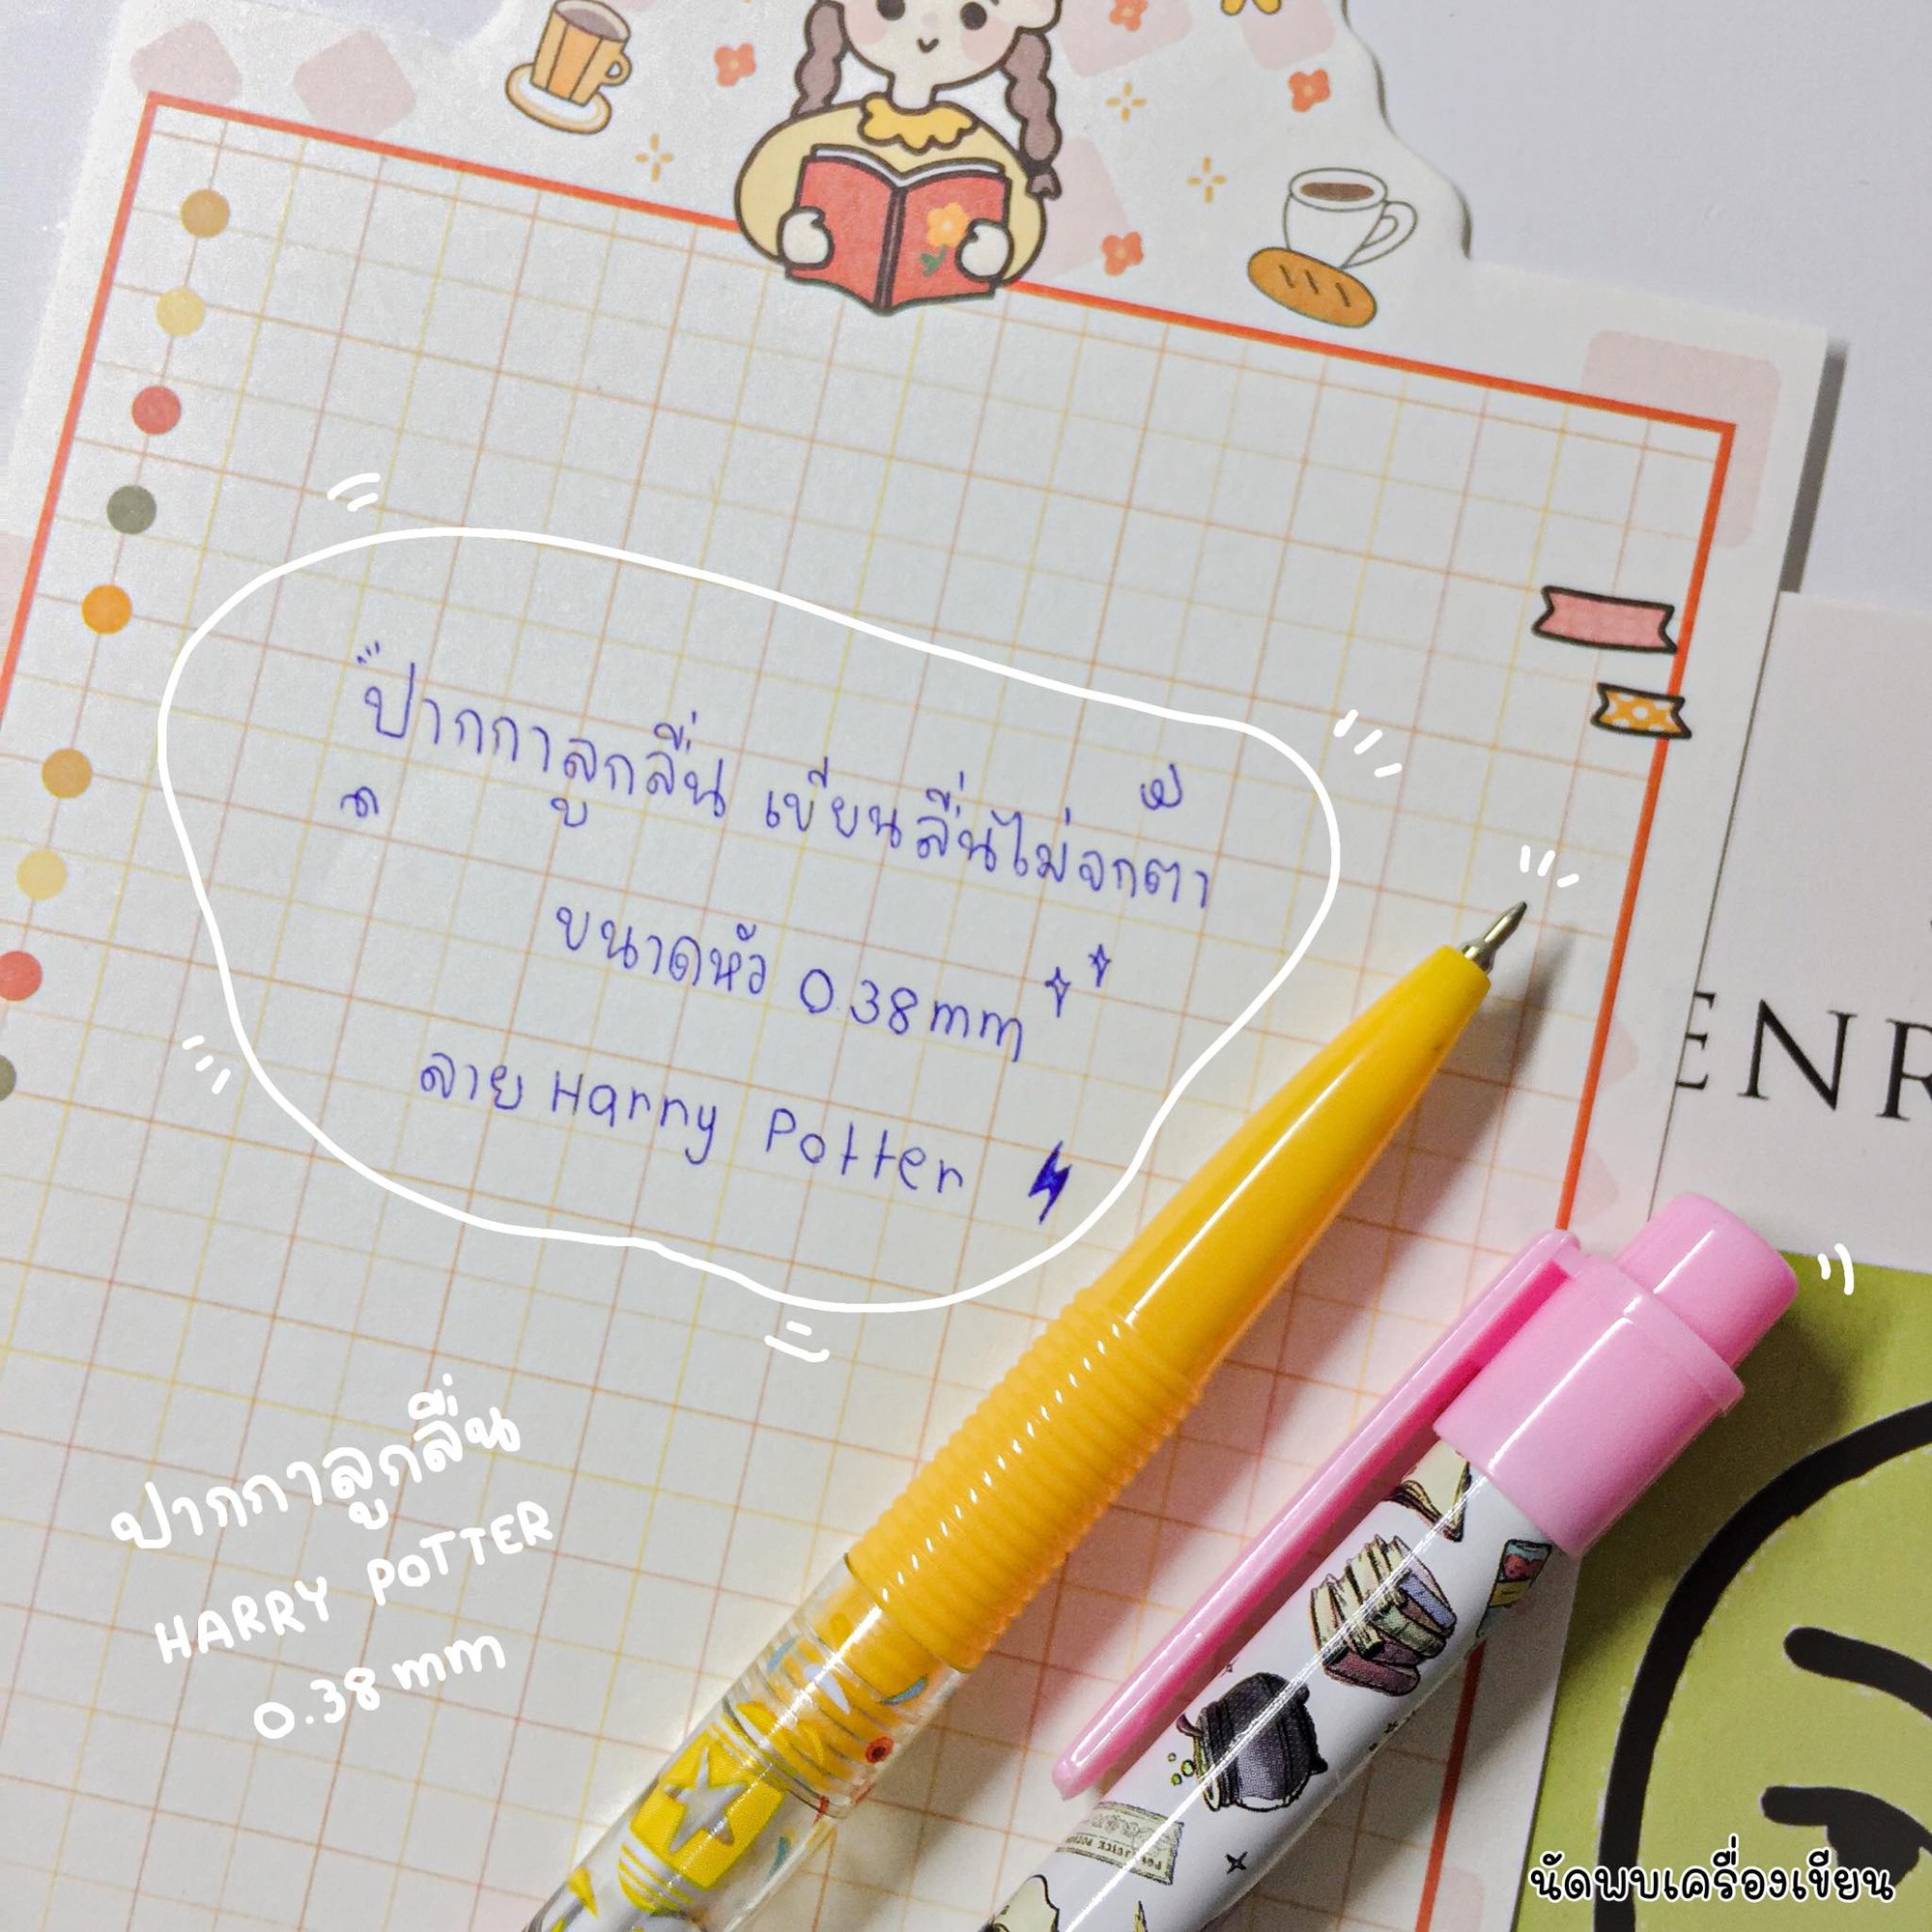 ปากกาลูกลื่น เขียนลื่นไม่จกตา
ขนาดหัว 0.38mm
ลาย Harry Potter
ENR
ปากกาลูกลื่น
HARRY POTTER
0.38 mm
นัดพบเครื่องเขียน